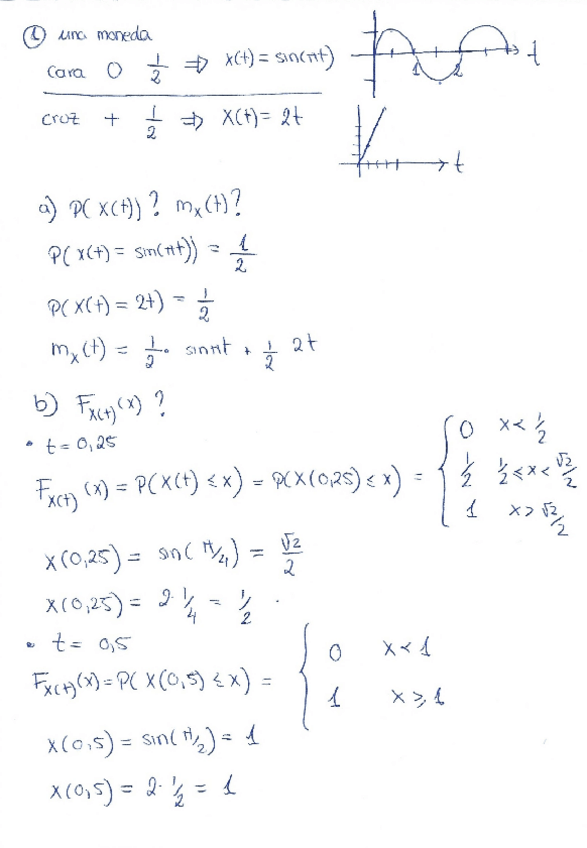 ① una moneda
cara O 1/2 ⇒ x(t) = sin(πt)
1 2 t
croz + 1/2 ⇒ X(t) = 2t
t
a) P(X(t))? m_X(t)?
P(X(t) = sin(πt)) = 1/2
P(X(t) = 2t) = 1/2
m_X(t) = 1/2 · sinπt + 1/2 2t
b) F_X(t)(x) ?
• t = 0,25
F_X(t)(x) = P(X(t) ≤ x) = P(X(0,25) ≤ x) = { 0 x < 1/2
1/2 1/2 ≤ x < √2/2
1 x > √2/2
X(0,25) = sin(π/4) = √2/2
X(0,25) = 2·1/4 = 1/2
• t = 0,5
F_X(t)(x) = P(X(0,5) ≤ x) = { 0 x < 1
1 x ≥ 1
X(0,5) = sin(π/2) = 1
X(0,5) = 2·1/2 = 1